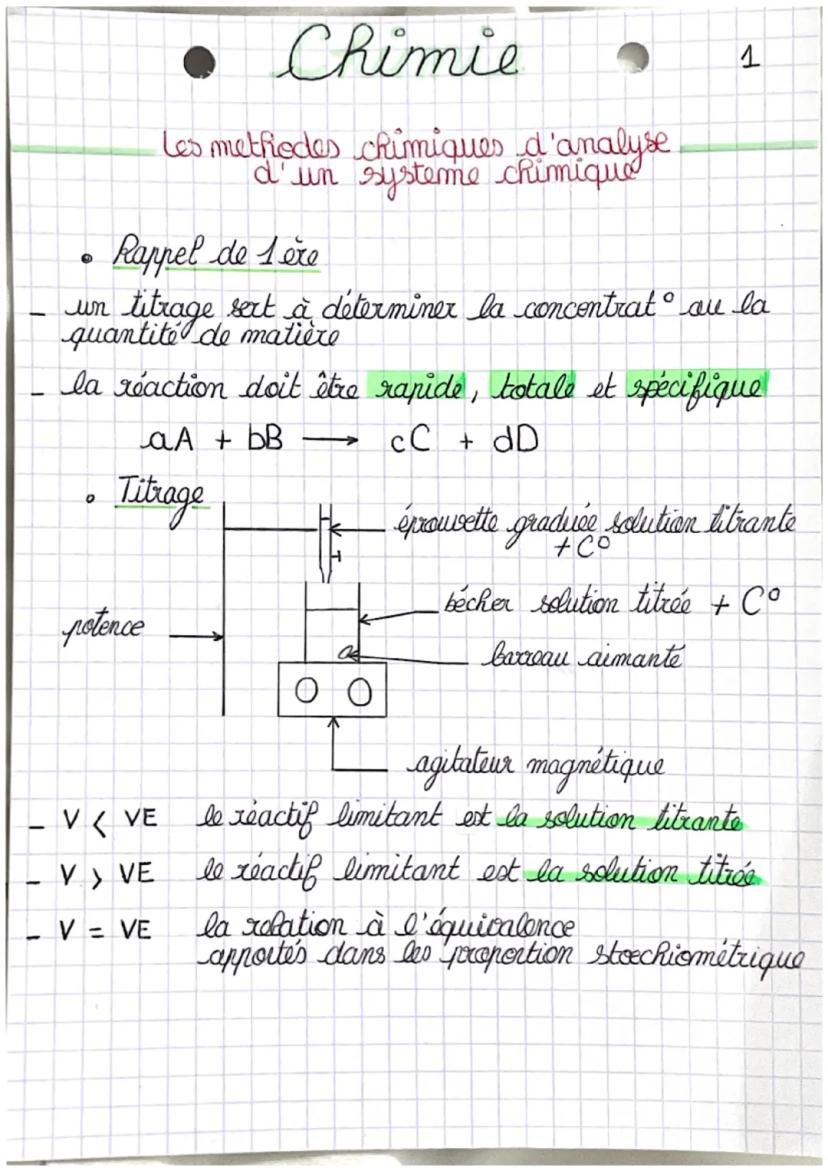 Chimie
1
Les methodes chimiques d'analyse
d'un systeme chimique
• Rappel de 1ère
- un titrage sert à déterminer la concentrat° ou la
quantité de matière
- la réaction doit être rapide, totale et spécifique
aA + bB → cC + dD
• Titrage
éprouvette graduée solution titrante
+ C°
bécher solution titrée + C°
potence
barreau aimanté
agitateur magnétique
- V < VE le réactif limitant est la solution titrante
- V > VE le réactif limitant est la solution titrée
- V = VE la relation à l'équivalence
apportés dans les proportion stoechiométrique